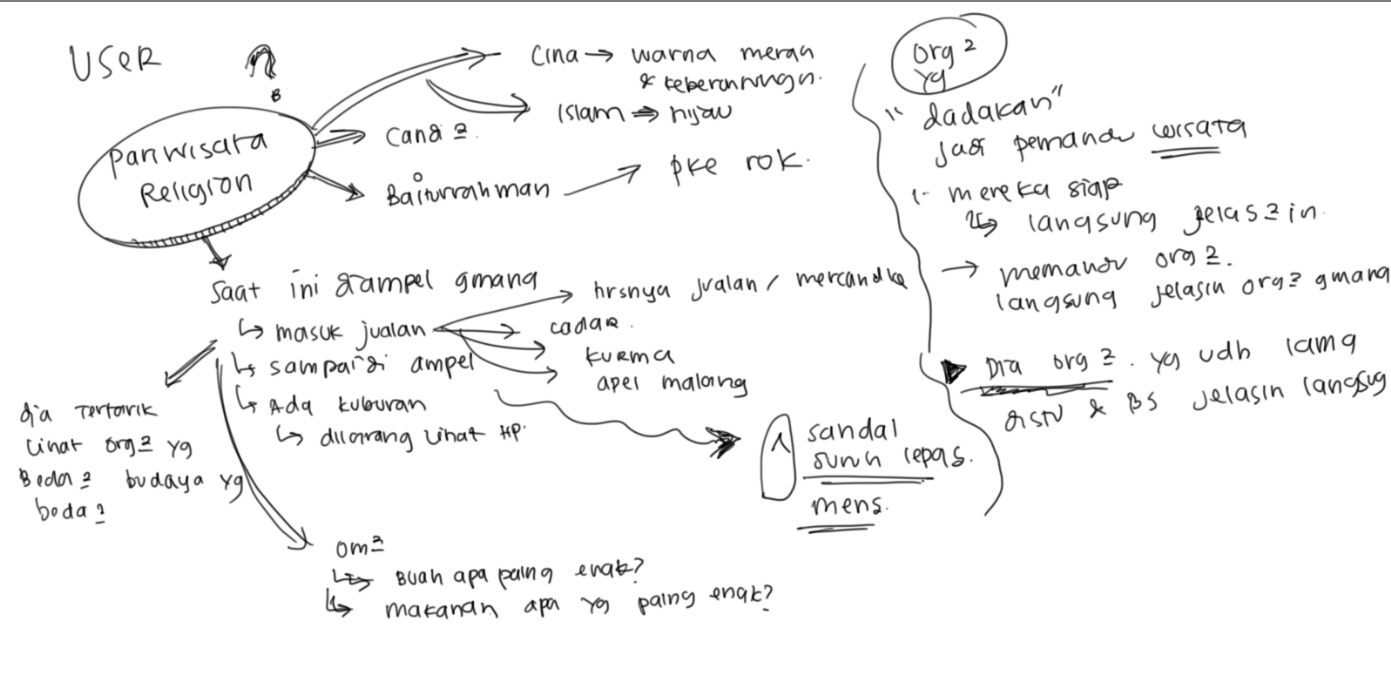 USER
Cina → warna merah
& keberuntungn.
Islam ⇒ hijau
Candi 2.
Pariwisata
Religion
Baiturrahman → pke rok.
Saat ini diampel gmana
↳ masuk jualan
hrsnya jualan / mercandise
cadar.
kurma
apel malang
↳ sampai di ampel
↳ Ada kuburan
↳ dilarang lihat HP.
sandal
suruh lepas.
mens.
dia Tertarik
lihat org2 yg
Beda2 budaya yg
beda2
om2
↳ Buah apa paing enak?
↳ makanan apa yg paing enak?
org2
yg
"dadakan"
jadi pemandu wisata
1. mereka siap
↳ langsung jelas2in.
→ memandu org2.
langsung jelasin org2 gmana
Dia org2. yg udh lama
distu & BS jelasin langsug